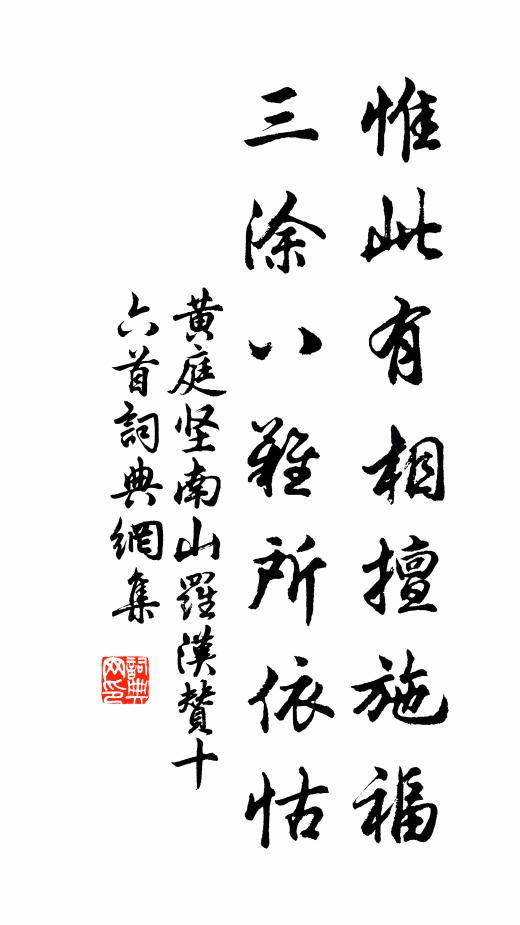 惟此有相擅施福
三涂八難所依怙
黄庭坚南山羅漢贊十
六首詞典網集
詞典网印